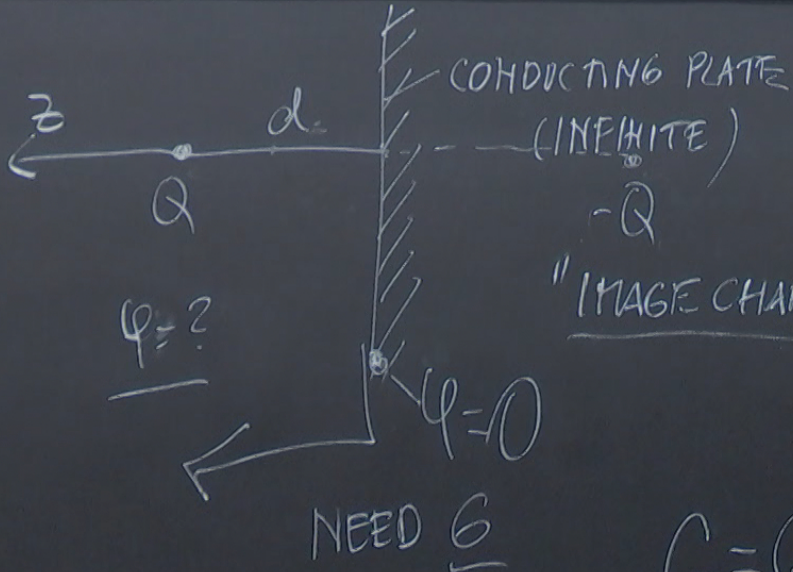 CONDUCTING PLATE
(INFINITE)
z
d
Q
-Q
"IMAGE CHA
φ=?
φ=0
NEED G